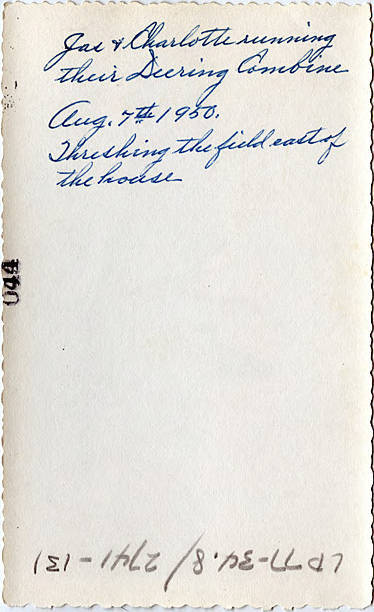 Jas & Charlotte running
their Deering Combine
Aug. 7th 1950.
Threshing the field east of
the house
044
LP77-34.8/2741-131